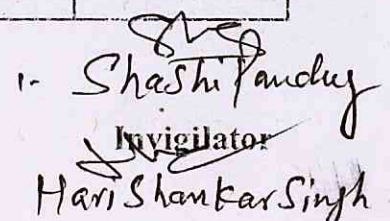 1- Shashi Pandey
Invigilator
Hari Shankar Singh